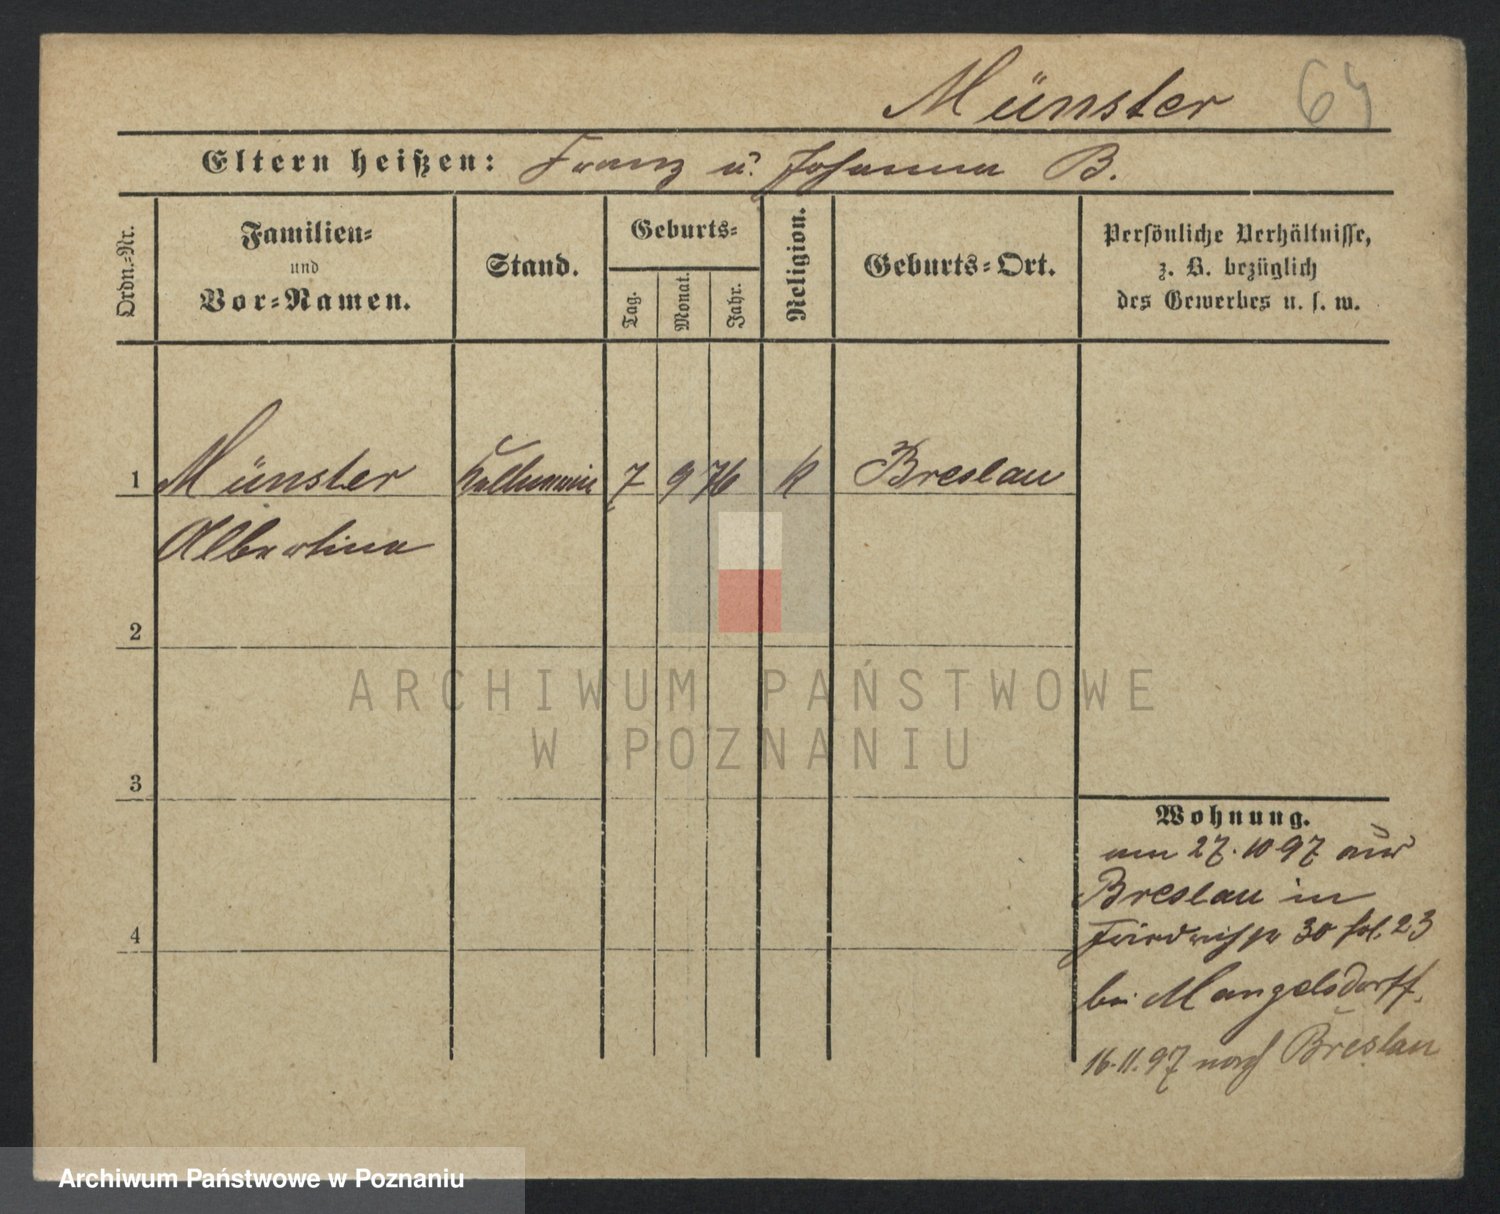 Münster 64
Eltern heißen: Franz u. Johanna B.
Ordn.-Nr.
Familien-
und
Vor-Namen.
Stand.
Geburts-
Tag.
Monat.
Jahr.
Religion.
Geburts-Ort.
Persönliche Verhältnisse,
z. B. bezüglich
des Gewerbes u. s. w.
1 Münster 7 9 76 K Breslau
Albertine
2
3
4
ARCHIWUM PAŃSTWOWE
W POZNANIU
Wohnung.
am 27.10 97 aus
Breslau in
30 23
bei Mangelsdorff,
16.11.97 nach Breslau
Archiwum Państwowe w Poznaniu